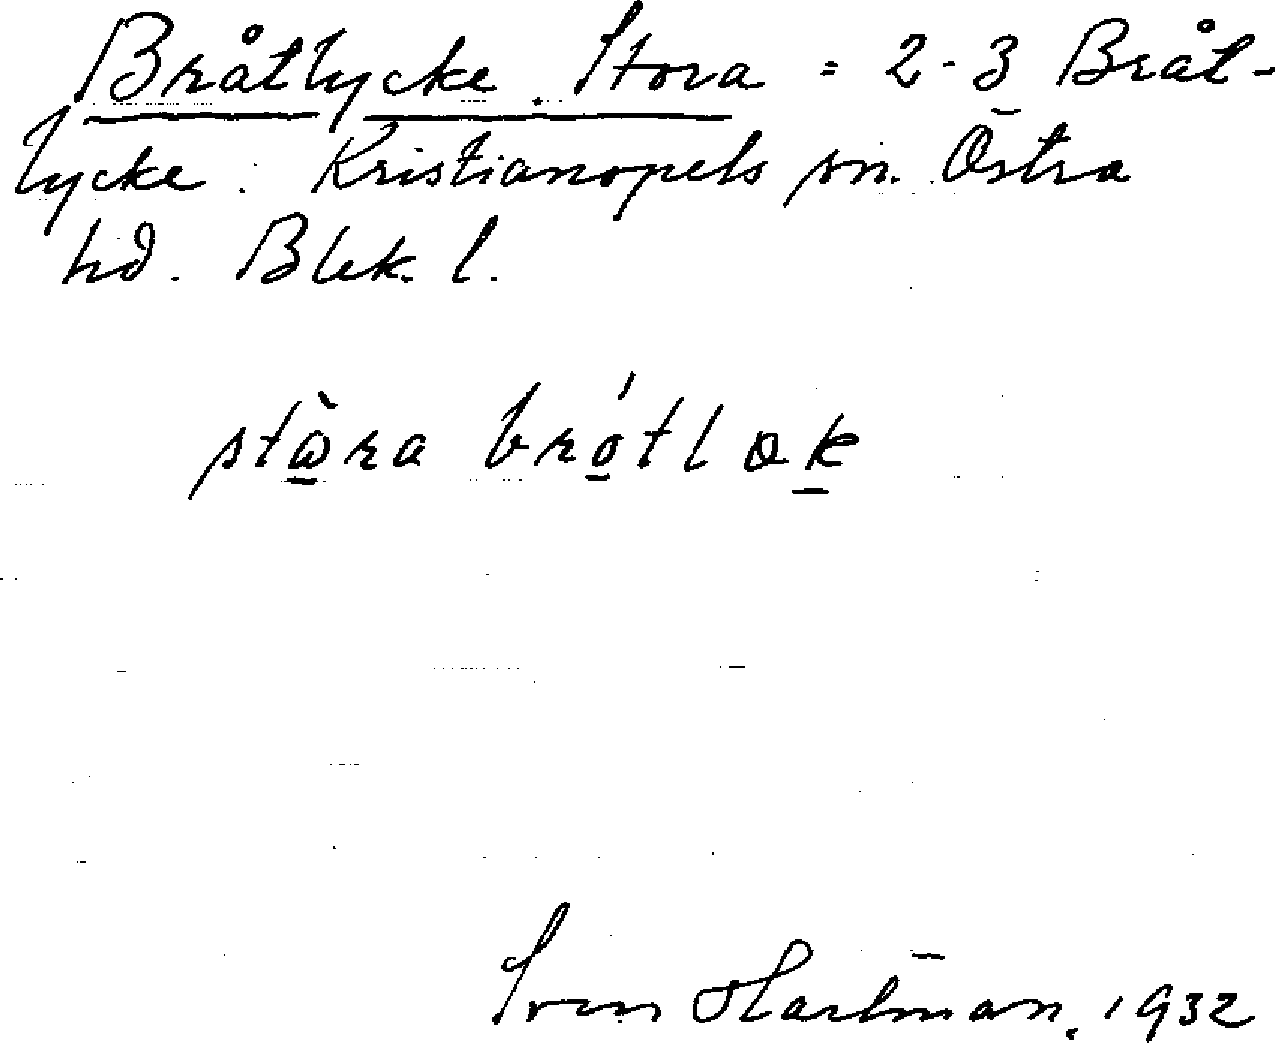 Bråtlycke. Stora = 2-3 Bråt-
lycke. Kristianopels sn. Östra
hd. Blek. l.
stɷ̀ra brótlək
Sven Hartman, 1932